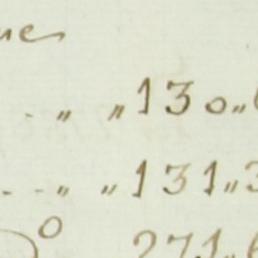 ue
.. „ „ 130„
... „ „ 131„3
271„6